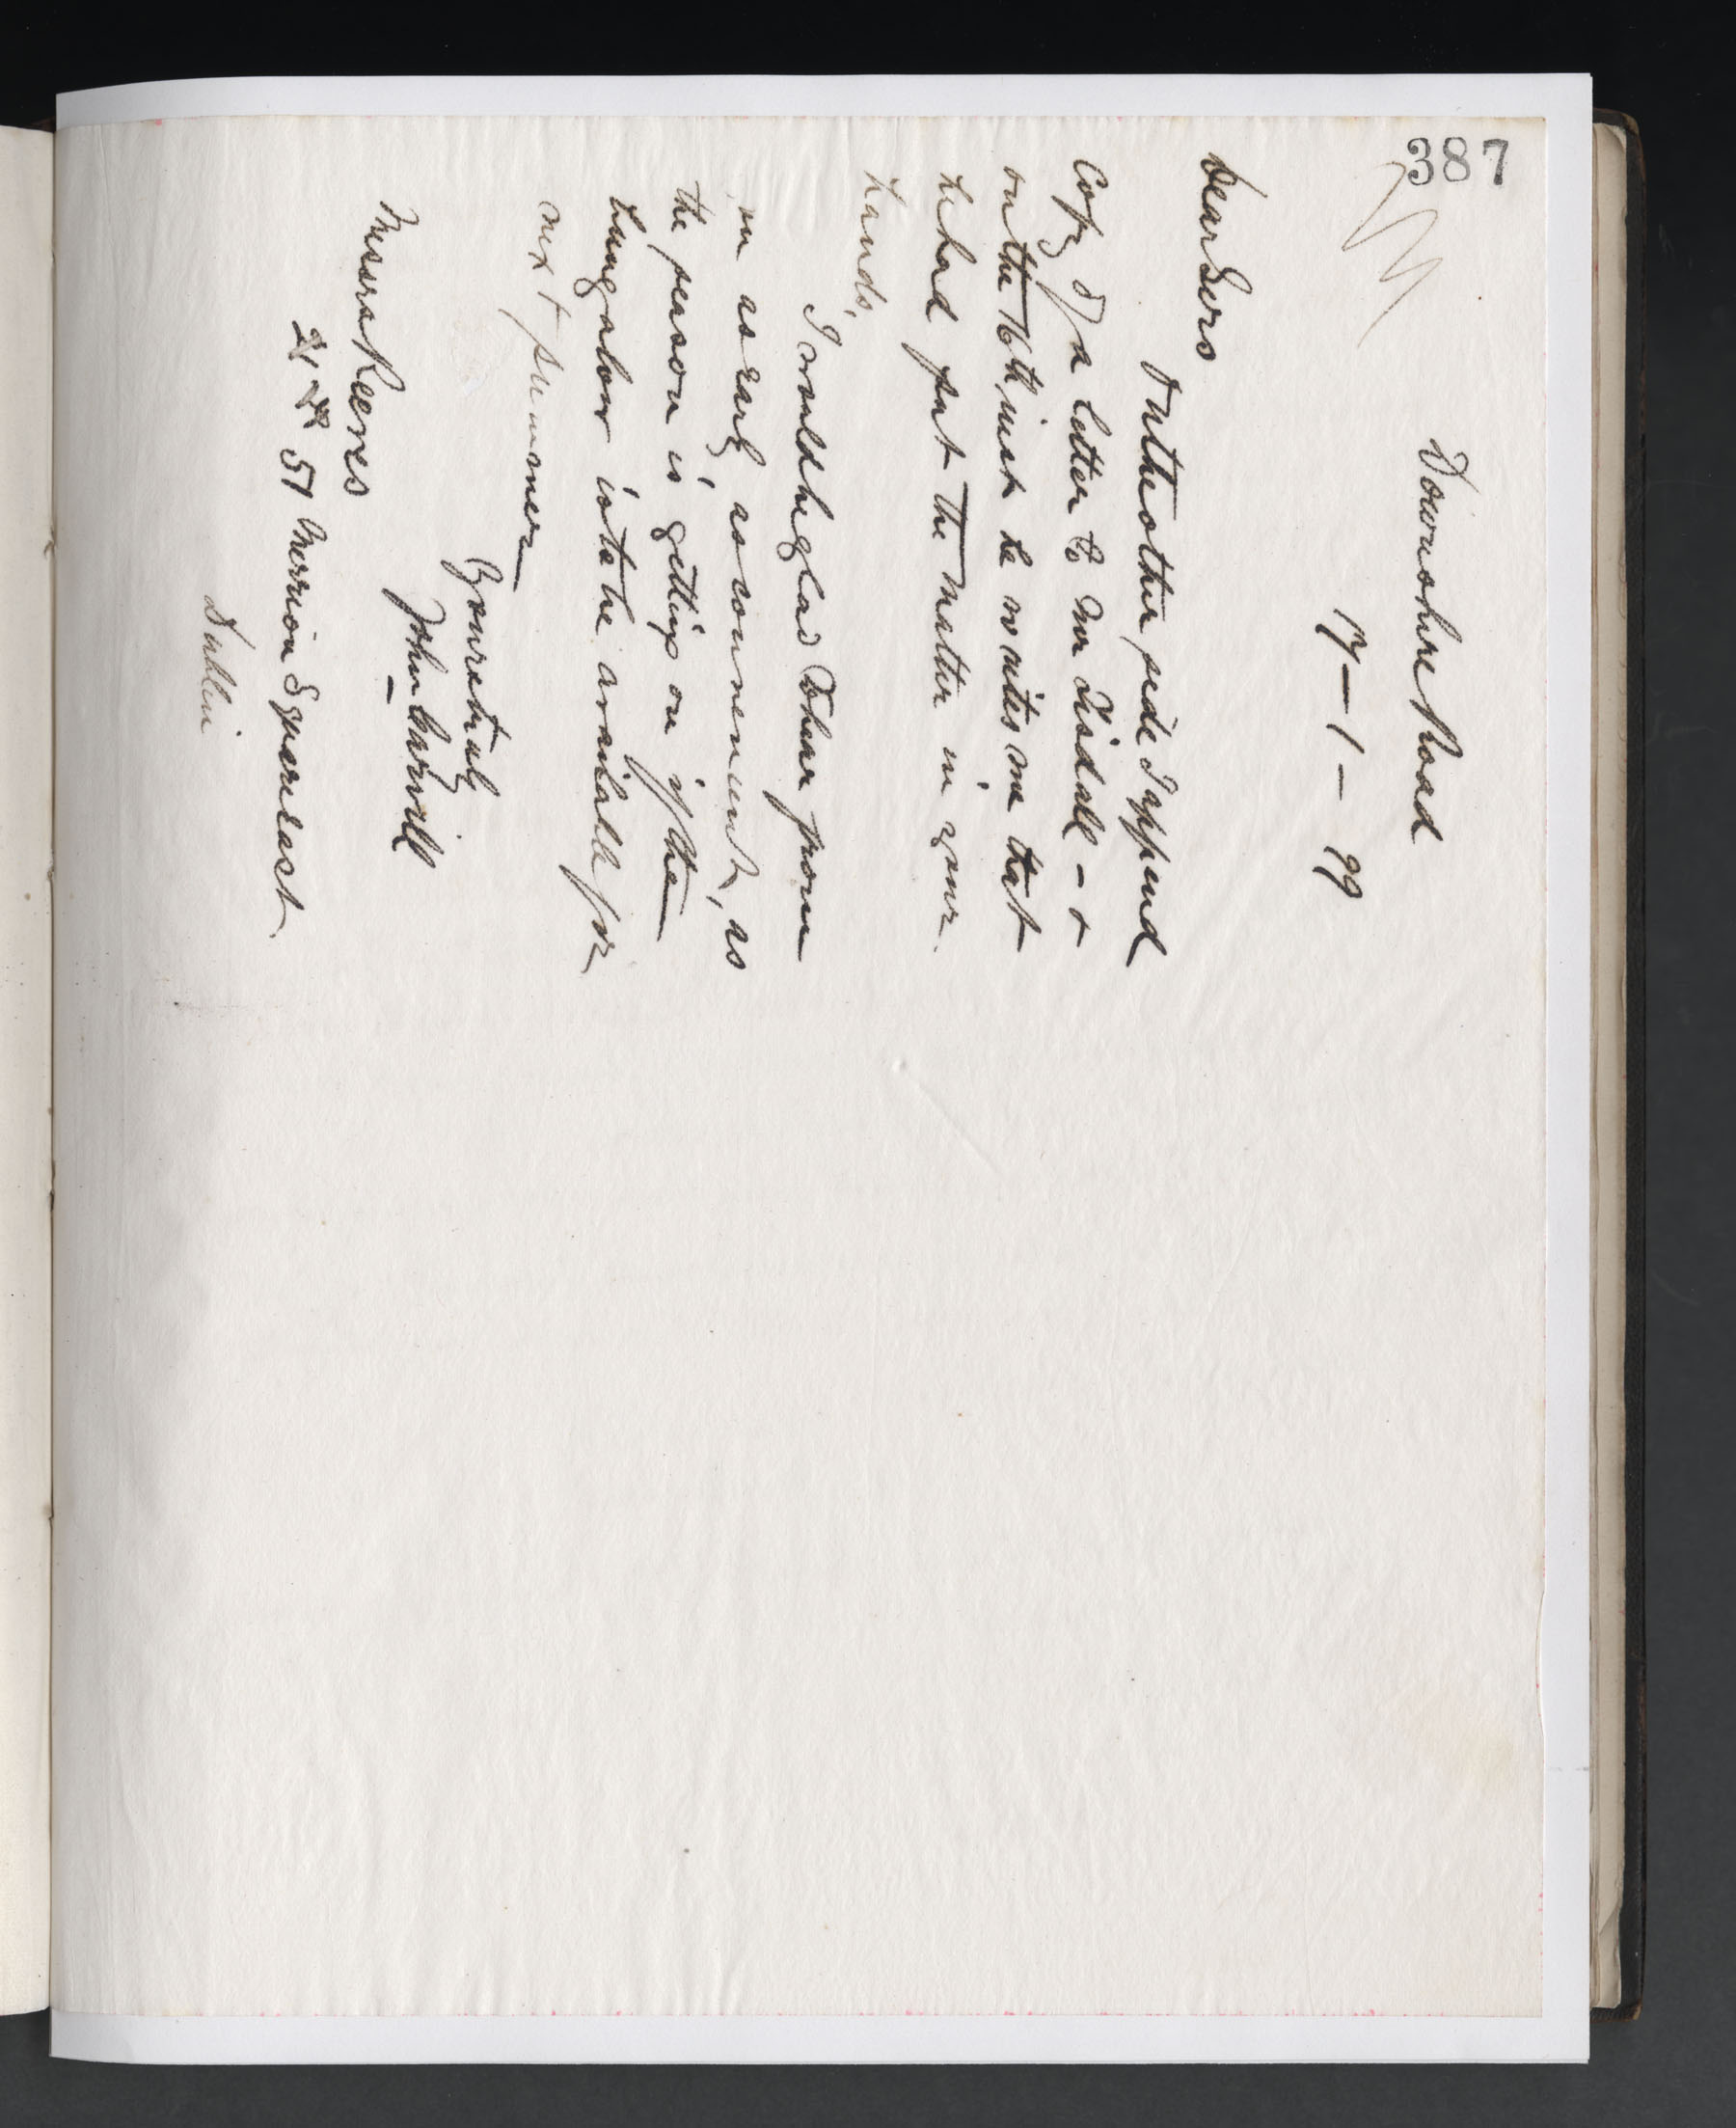 387
Downshire Road
17-1-99
Dear Sirs
On the other side I append
Copy of a letter to Mr Tisdall - &
on the 16th inst he writes me that
he had put the matter in your
hands,
I would be glad to hear from
you as early as convenient, as
the season is getting on if the
bungalow is to be available for
next summer
Yours truly
John
Messrs Reeves
51 Merrion Square East.
Dublin